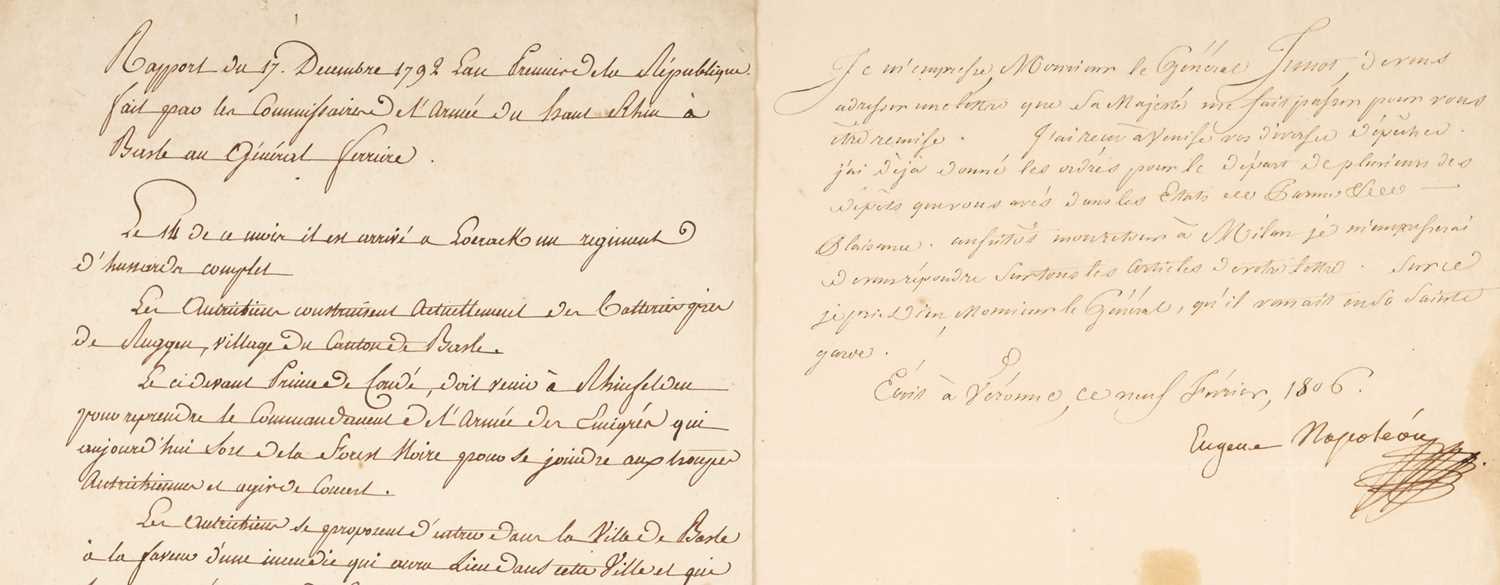 Rapport du 17. Decembre 1792 Lan Premier de la République
fait par les Commissaires de l'Armée du haut Rhin à
Basle au Général ferriere.
Le 14 de ce mois il est arrivé a Loerack un regiment
d'hussards complet
Les Autrichiens construisent Actuellement des Batteries près
de Ruggen, village du Canton de Basle.
Le ci devant Prince de Condé, doit venir à Rhinfelden
pour reprendre le Commandement de l'Armée des Emigrés qui
aujourd'hui sort de la Forest Noire pour se joindre aux trouppes
Autrichiennes et agir de Concert.
Les Autrichiens se proposent d'entrer dans la Ville de Basle
à la faveur d'une incendie qui aura Lieu dans cette Ville et que
Je m'empresse, Monsieur le Général Junot, de vous
adresser une lettre que Sa Majesté me fait passer pour vous
être remise. J'ai reçu à Venise vos diverses dépêches.
j'ai déjà donné les ordres pour le départ de plusieurs des
dépôts que vous avés dans les Etats de Parme &
Plaisance. aussitôt mon retour à Milan je m'empresserai
de vous répondre sur tous les articles de votre lettre. Sur ce
je prie Dieu, Monsieur le Général, qu'il vous ait en sa Sainte
garde.
Écrit à Véronne, ce neuf Février, 1806.
Eugene Napoléon